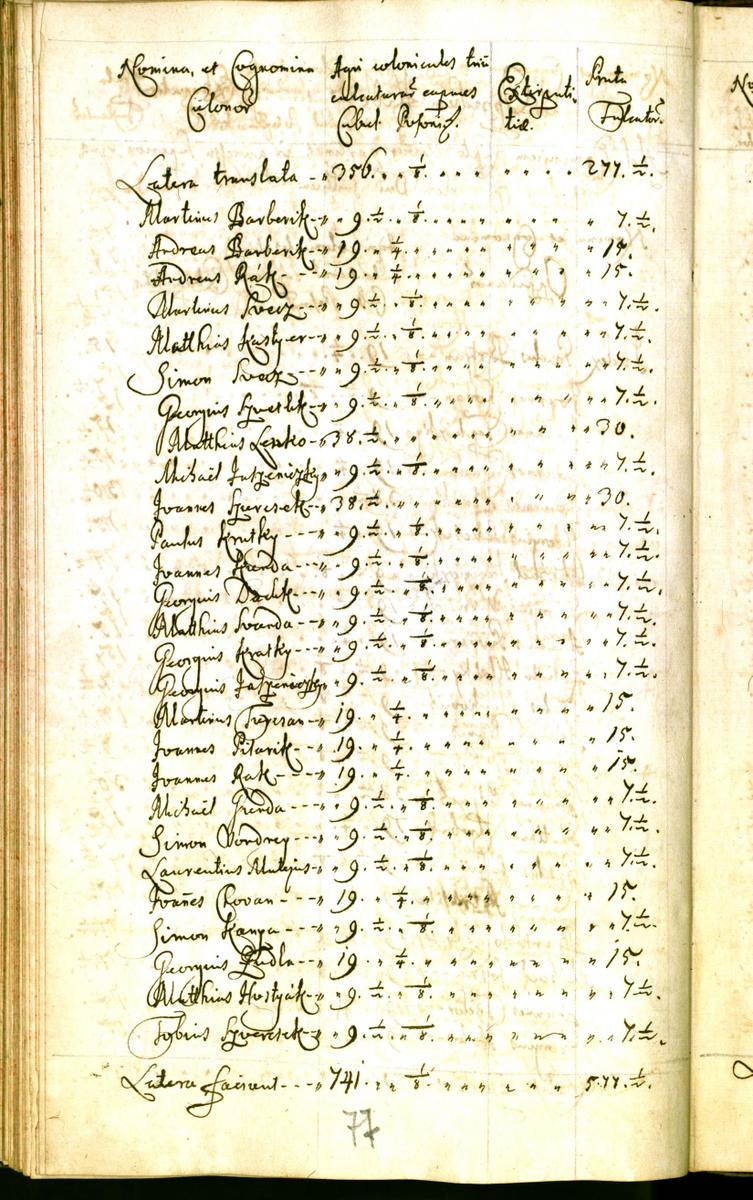 Nomina, et Cognomina Colonor̄
Agri colonicales triū calcaturar̄ capaces Cubul. Posoniē.
Extirpatitiæ.
Prata Falcator̄.
Latera translata - " 356. " 1/8. " " " " 277. 1/2.
Martinus Barborik - " 9. 1/2. " 1/8. " " " " 7. 1/2.
Andreas Barborik - " 19. " 1/4. " " " " 15.
Andreas Rák - - " 19. " 1/4. " " " " 15.
Martinus Svecz - - " 9. 1/2. " 1/8. " " " " 7. 1/2.
Matthias Kasper - " 9. 1/2. " 1/8. " " " " 7. 1/2.
Simon Svecz - - " 9. 1/2. " 1/8. " " " " 7. 1/2.
Georgius Szvetlik - " 9. 1/2. " 1/8. " " " " 7. 1/2.
Matthius Lepko - " 38. 1/2. " " " " 30.
Michaël - " 9. 1/2. " 1/8. " " " " 7. 1/2.
Joannes - " 38. 1/2. " " " " 30.
Paulus Kratky - - " 9. 1/2. " 1/8. " " " " 7. 1/2.
Joannes - - " 9. 1/2. " 1/8. " " " " 7. 1/2.
Georgius - - " 9. 1/2. " 1/8. " " " " 7. 1/2.
Matthius Svanda - - " 9. 1/2. " 1/8. " " " " 7. 1/2.
Georgius Kratky - - " 9. 1/2. " 1/8. " " " " 7. 1/2.
Georgius - " 9. 1/2. " 1/8. " " " " 7. 1/2.
Martinus - " 19. " 1/4. " " " " 15.
Joannes Pitarik - " 19. " 1/4. " " " " 15.
Joannes Rak - - " 19. " 1/4. " " " " 15.
Michaël - - " 9. 1/2. " 1/8. " " " " 7. 1/2.
Simon Vondrey - - " 9. 1/2. " 1/8. " " " " 7. 1/2.
Laurentius - " 9. 1/2. " 1/8. " " " " 7. 1/2.
Joan̄es Chovan - - " 19. " 1/4. " " " " 15.
Simon Kanya - - " 9. 1/2. " 1/8. " " " " 7. 1/2.
Georgius - " 19. " 1/4. " " " " 15.
Matthias Hostyák - " 9. 1/2. " 1/8. " " " " 7. 1/2.
Tobius - " 9. 1/2. " 1/8. " " " " 7. 1/2.
Latera faciunt - - " 741. " 1/8. " " " " 577. 1/2.
77